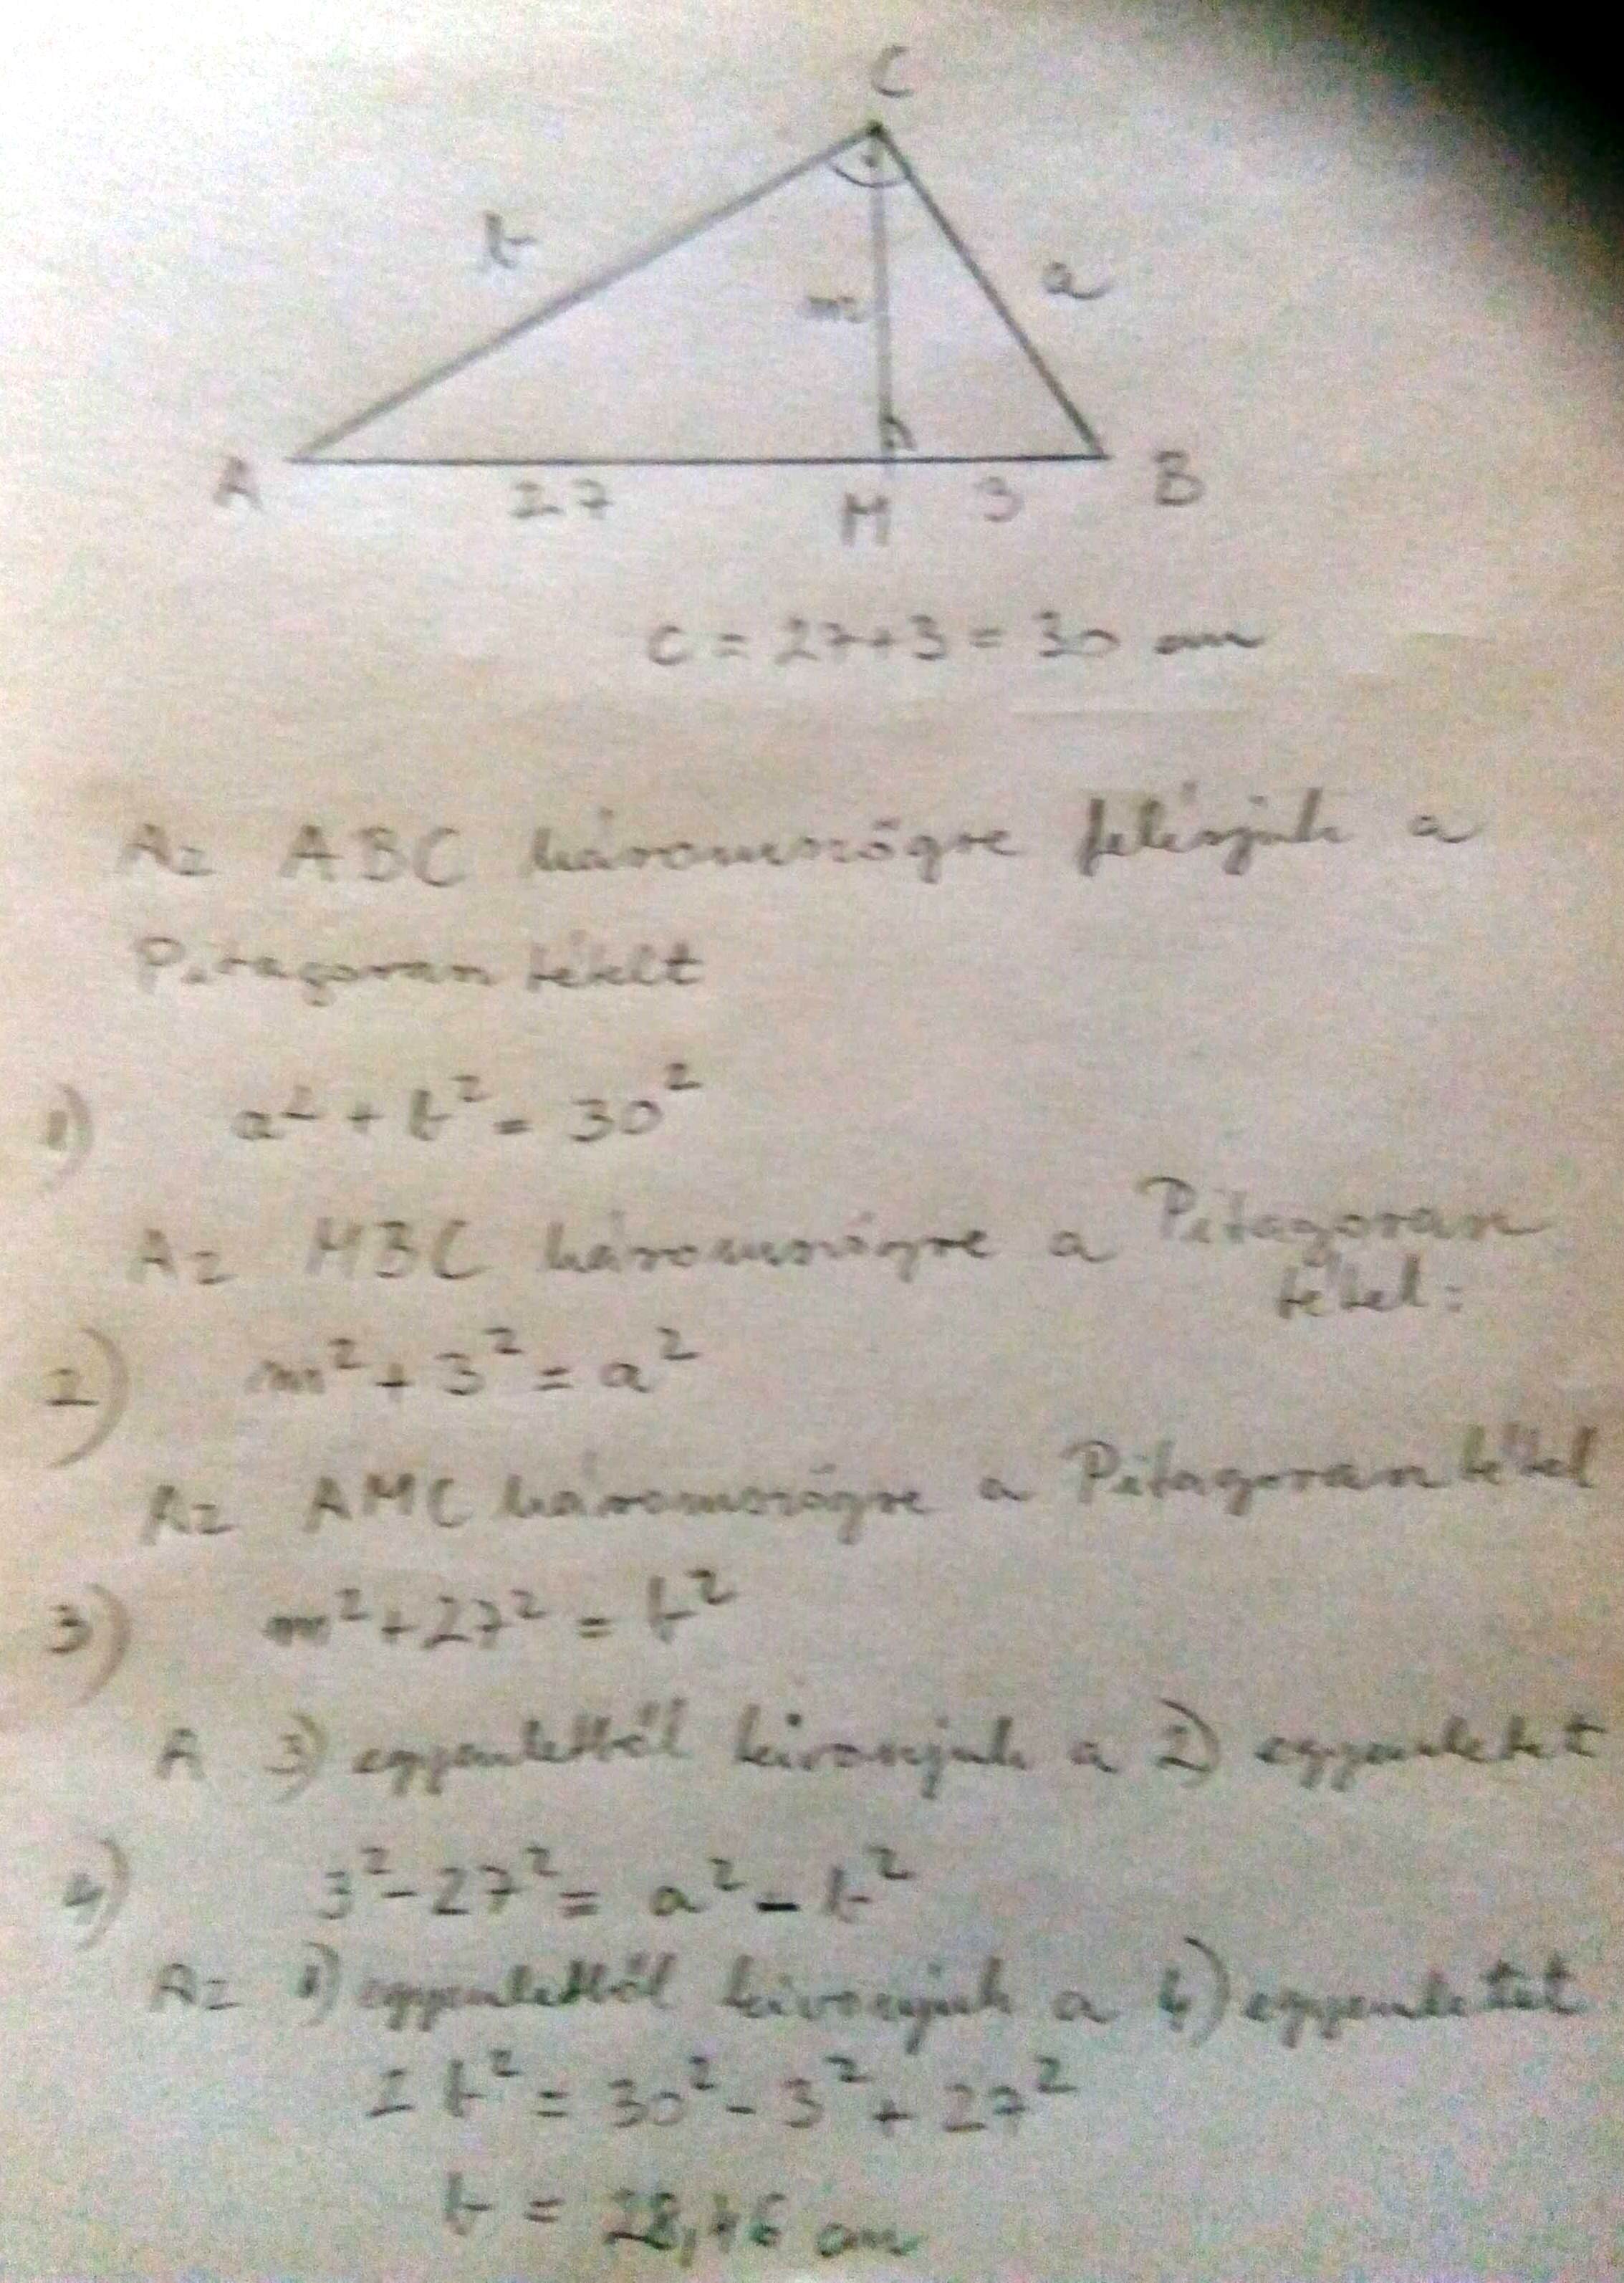 C
b
a
m
A 27 M 3 B
c = 27+3 = 30 cm
Az ABC háromszögre felírjuk a
Pitagoras tételt
1) a² + b² = 30²
Az MBC háromszögre a Pitagoras
tétel:
2) m² + 3² = a²
Az AMC háromszögre a Pitagoras tétel
3) m² + 27² = b²
A 3) egyenletből kivonjuk a 2) egyenletet
4) 3² - 27² = a² - b²
Az 1) egyenletből kivonjuk a 4) egyenletet
2 b² = 30² - 3² + 27²
b = 28,46 cm